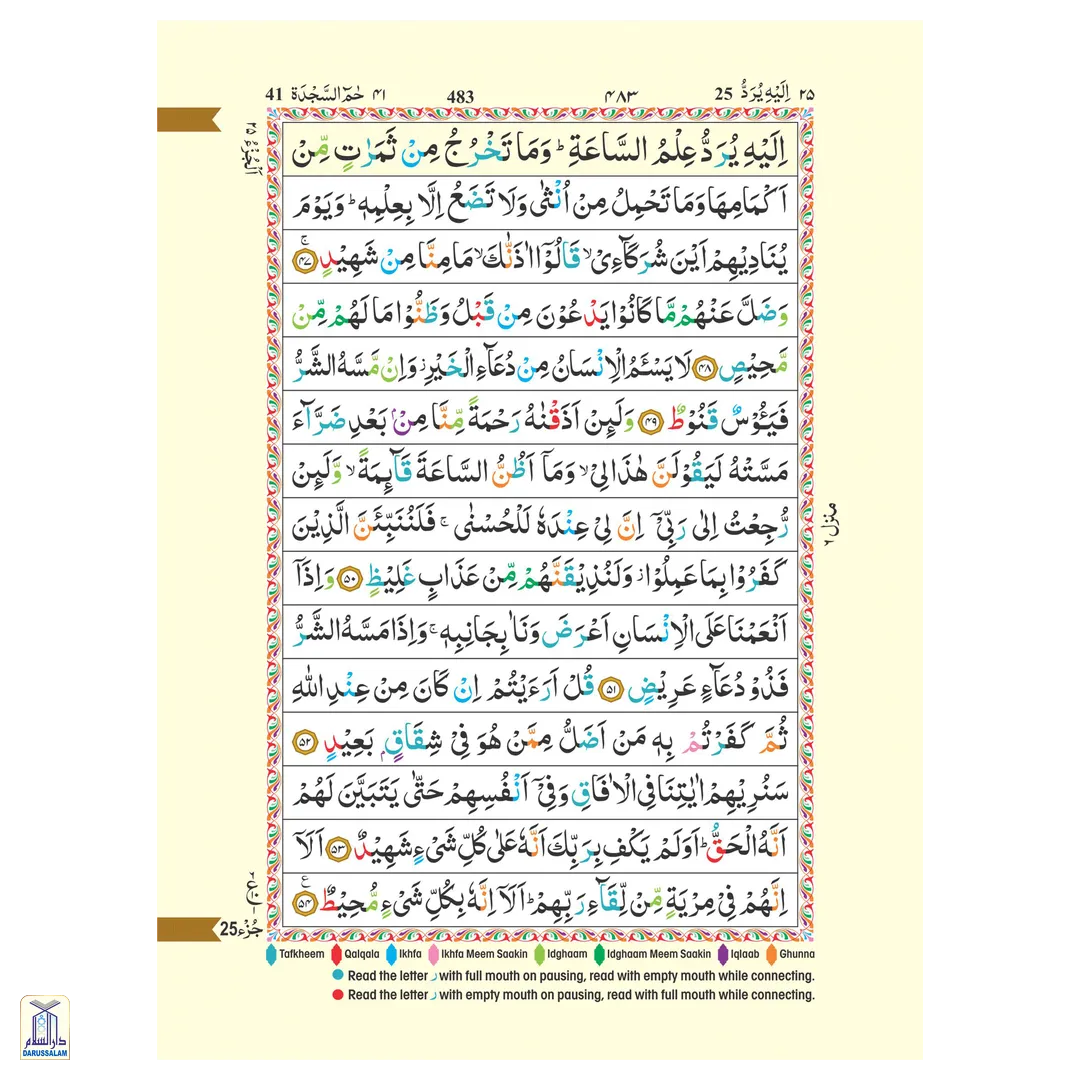 ٢٥ اِلَيْهِ يُرَدُّ 25 ٤٨٣ 483 ٤١ حٰمٓ السَّجْدَة 41
اَلْجُزْءُ ٢٥
اِلَيْهِ يُرَدُّ عِلْمُ السَّاعَةِ ؕ وَمَا تَخْرُجُ مِنْ ثَمَرٰتٍ مِّنْ
اَكْمَامِهَا وَمَا تَحْمِلُ مِنْ اُنْثٰى وَلَا تَضَعُ اِلَّا بِعِلْمِهٖ ؕ وَيَوْمَ
يُنَادِيْهِمْ اَيْنَ شُرَكَآءِىْ ۙ قَالُوْٓا اٰذَنّٰكَ ۙ مَا مِنَّا مِنْ شَهِيْدٍ ۚ ﴿٤٧﴾
وَضَلَّ عَنْهُمْ مَّا كَانُوْا يَدْعُوْنَ مِنْ قَبْلُ وَظَنُّوْا مَا لَهُمْ مِّنْ
مَّحِيْصٍ ﴿٤٨﴾ لَا يَسْـَٔمُ الْاِنْسَانُ مِنْ دُعَآءِ الْخَيْرِ ز وَاِنْ مَّسَّهُ الشَّرُّ
فَيَـُٔوْسٌ قَنُوْطٌ ﴿٤٩﴾ وَلَئِنْ اَذَقْنٰهُ رَحْمَةً مِّنَّا مِنْۢ بَعْدِ ضَرَّآءَ
مَسَّتْهُ لَيَقُوْلَنَّ هٰذَا لِىْ ۙ وَمَاۤ اَظُنُّ السَّاعَةَ قَآئِمَةً ۙ وَّلَئِنْ
رُّجِعْتُ اِلٰى رَبِّىْۤ اِنَّ لِىْ عِنْدَهٗ لَلْحُسْنٰى ۚ فَلَنُنَبِّئَنَّ الَّذِيْنَ
كَفَرُوْا بِمَا عَمِلُوْا ز وَلَنُذِيْقَنَّهُمْ مِّنْ عَذَابٍ غَلِيْظٍ ﴿٥٠﴾ وَاِذَاۤ
اَنْعَمْنَا عَلَى الْاِنْسَانِ اَعْرَضَ وَنَاٰ بِجَانِبِهٖ ۚ وَاِذَا مَسَّهُ الشَّرُّ
فَذُوْ دُعَآءٍ عَرِيْضٍ ﴿٥١﴾ قُلْ اَرَءَيْتُمْ اِنْ كَانَ مِنْ عِنْدِ اللّٰهِ
ثُمَّ كَفَرْتُمْ بِهٖ مَنْ اَضَلُّ مِمَّنْ هُوَ فِىْ شِقَاقٍۭ بَعِيْدٍ ﴿٥٢﴾
سَنُرِيْهِمْ اٰيٰتِنَا فِى الْاٰفَاقِ وَفِىْۤ اَنْفُسِهِمْ حَتّٰى يَتَبَيَّنَ لَهُمْ
اَنَّهُ الْحَقُّ ؕ اَوَلَمْ يَكْفِ بِرَبِّكَ اَنَّهٗ عَلٰى كُلِّ شَىْءٍ شَهِيْدٌ ﴿٥٣﴾ اَلَاۤ
اِنَّهُمْ فِىْ مِرْيَةٍ مِّنْ لِّقَآءِ رَبِّهِمْ ؕ اَلَاۤ اِنَّهٗ بِكُلِّ شَىْءٍ مُّحِيْطٌ ﴿٥٤﴾ ع
منزل ٦
جُزْء 25
Tafkheem Qalqala Ikhfa Ikhfa Meem Saakin Idghaam Idghaam Meem Saakin Iqlaab Ghunna
Read the letter ر with full mouth on pausing, read with empty mouth while connecting.
Read the letter ر with empty mouth on pausing, read with full mouth while connecting.
دار السلام
DARUSSALAM